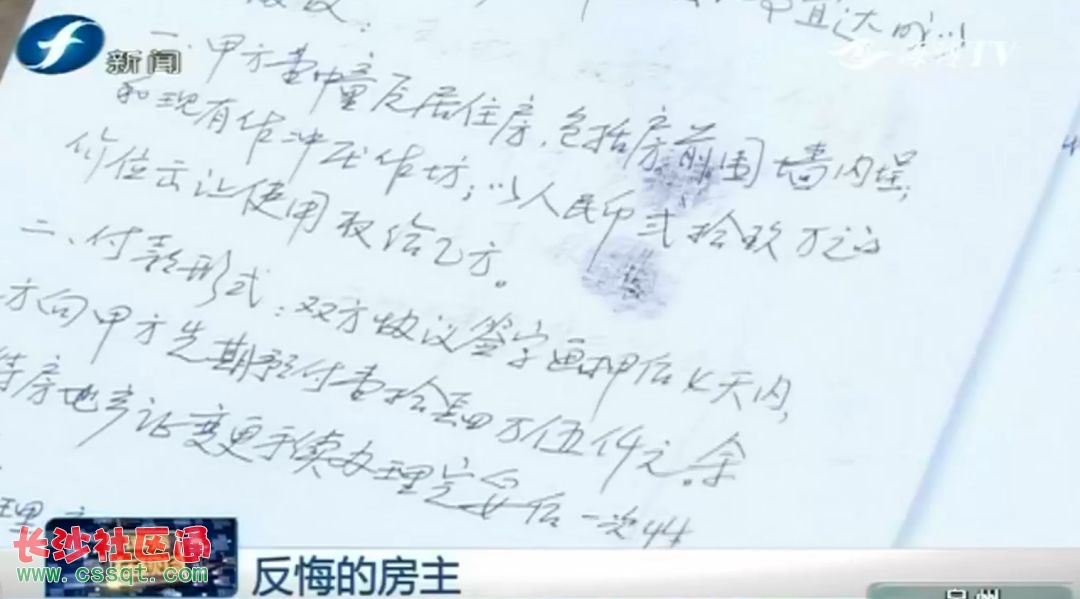 新闻
海博TV
直达成
一、甲方壹幢瓦居住房,包括房前围墙内埕,
和现有作冲压作坊;以人民币贰拾玖万元的
价位出让使用权给乙方。
二、付款形式:双方协议签字画押后 天内,
方向甲方先期预付壹拾肆万伍仟元。余
待房地产证变更手续办理完毕后一次
理
长沙社区通
www.cssqt.com
反悔的房主
泉州